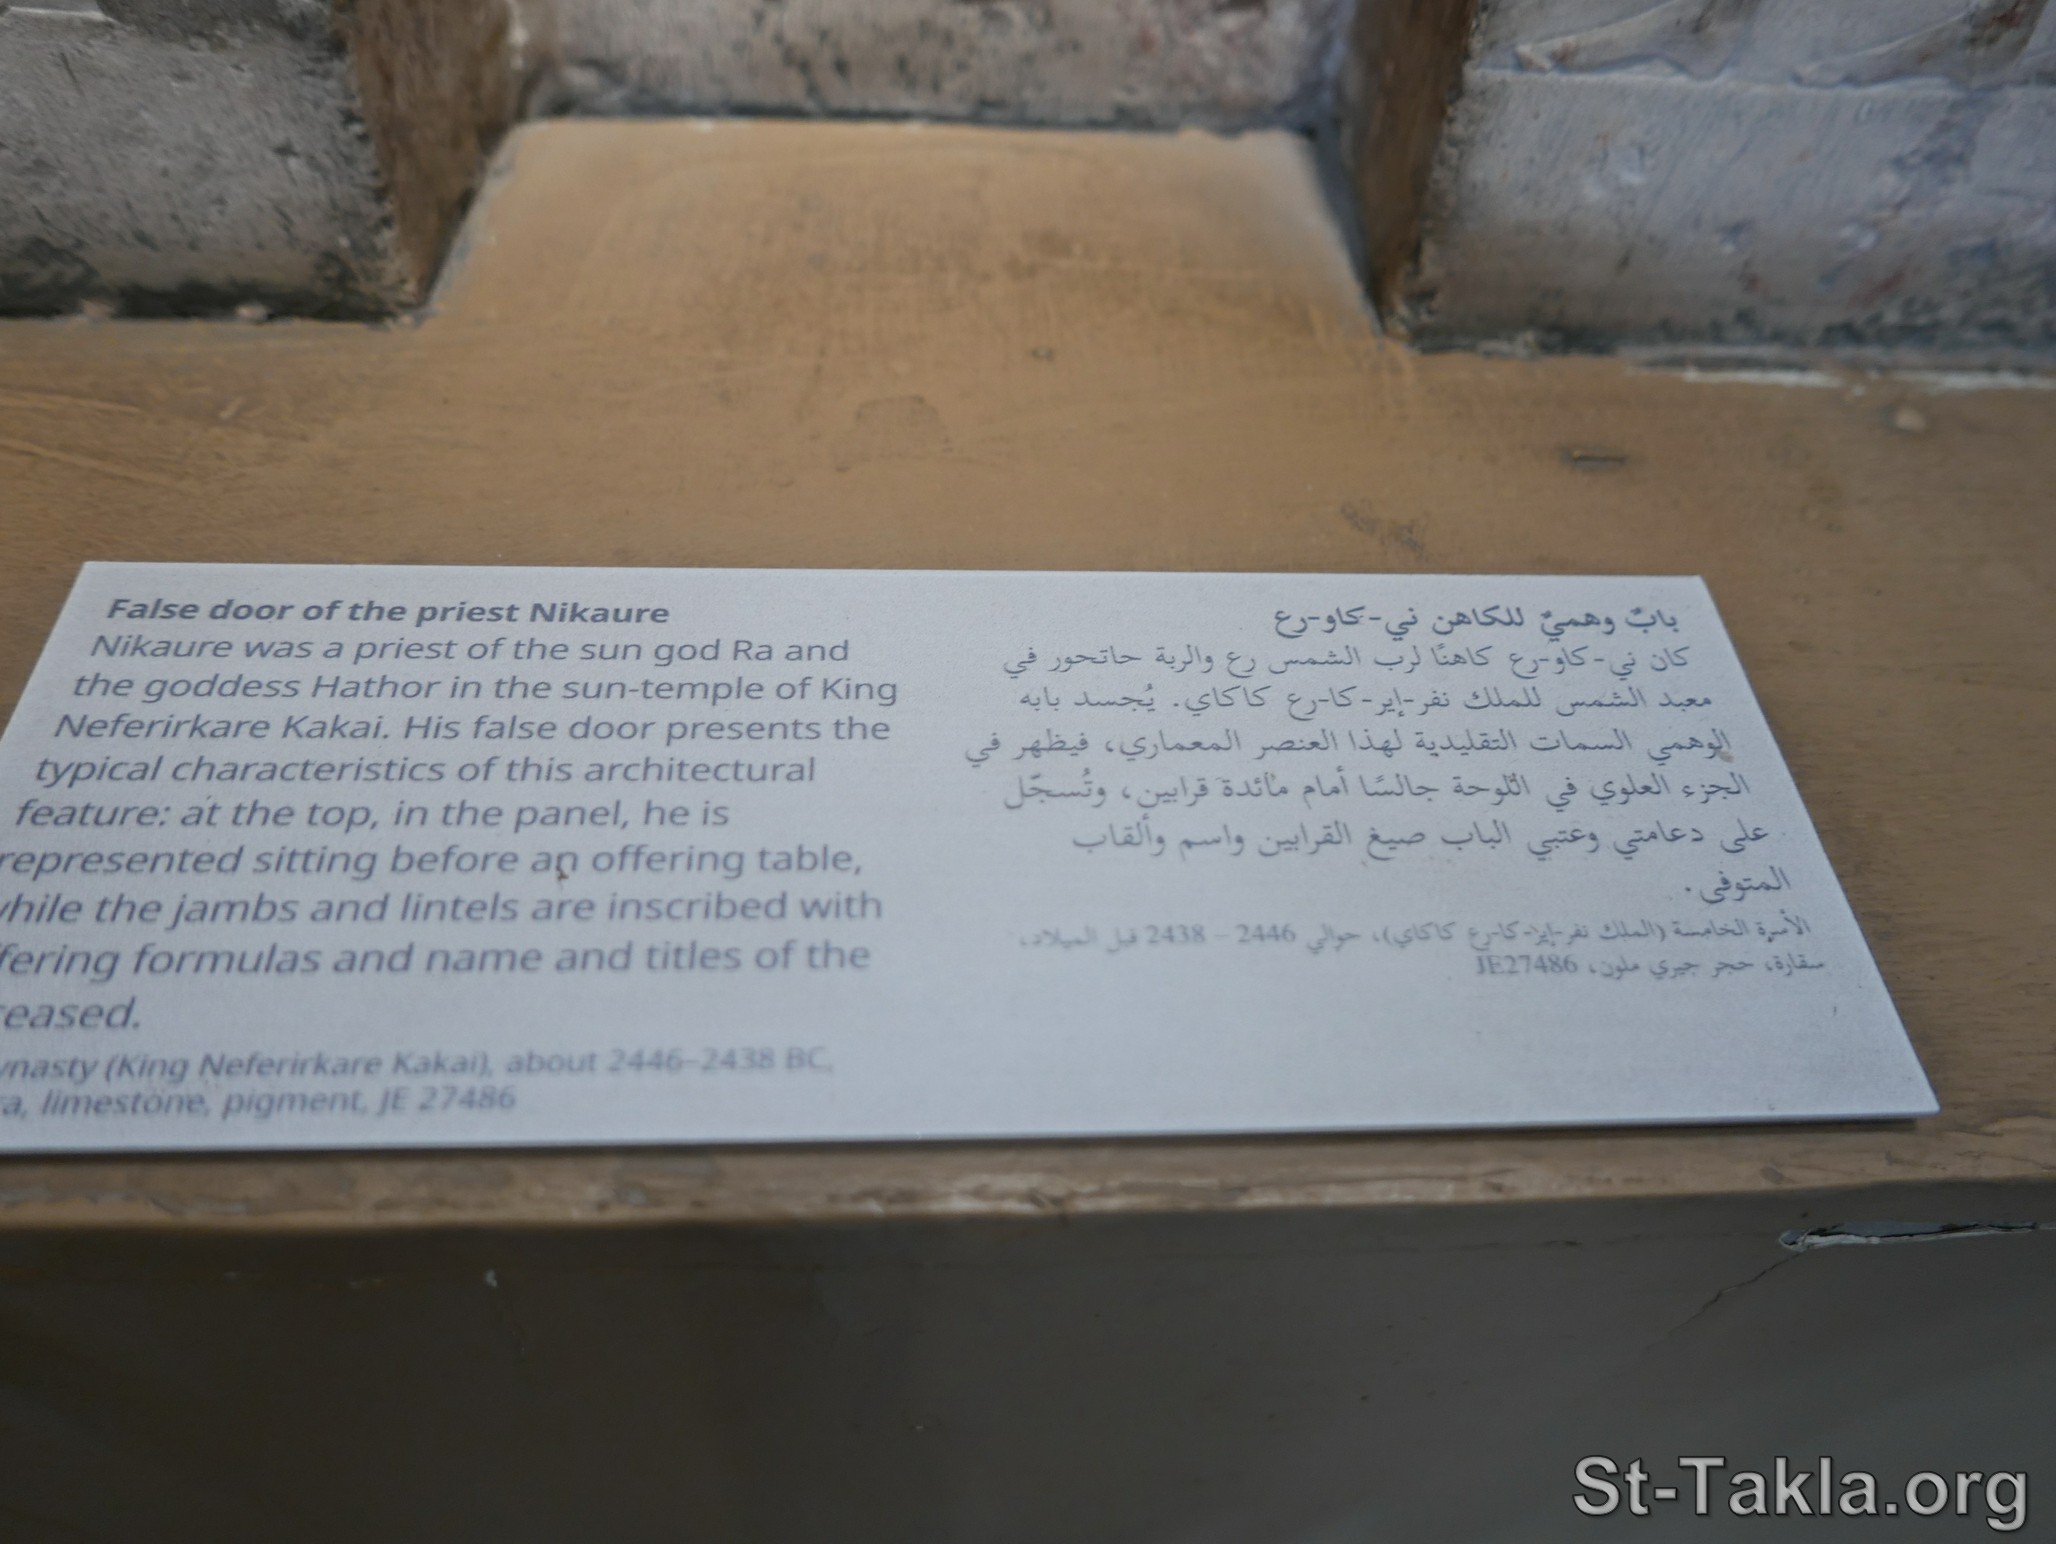 False door of the priest Nikaure
Nikaure was a priest of the sun god Ra and
the goddess Hathor in the sun-temple of King
Neferirkare Kakai. His false door presents the
typical characteristics of this architectural
feature: at the top, in the panel, he is
represented sitting before an offering table,
while the jambs and lintels are inscribed with
fering formulas and name and titles of the
eased.
ynasty (King Neferirkare Kakai), about 2446–2438 BC,
a, limestone, pigment, JE 27486
بابٌ وهميٌ للكاهن ني-كاو-رع
كان ني-كاو-رع كاهنًا لرب الشمس رع والربة حاتحور في
معبد الشمس للملك نفر-إير-كا-رع كاكاي. يُجسد بابه
الوهمي السمات التقليدية لهذا العنصر المعماري، فيظهر في
الجزء العلوي في اللوحة جالسًا أمام مائدة قرابين، وتُسجّل
على دعامتي وعتبي الباب صيغ القرابين واسم وألقاب
المتوفى.
الأسرة الخامسة (الملك نفر-إير-كا-رع كاكاي)، حوالي 2446 – 2438 قبل الميلاد،
سقارة، حجر جيري ملون، JE27486
St-Takla.org